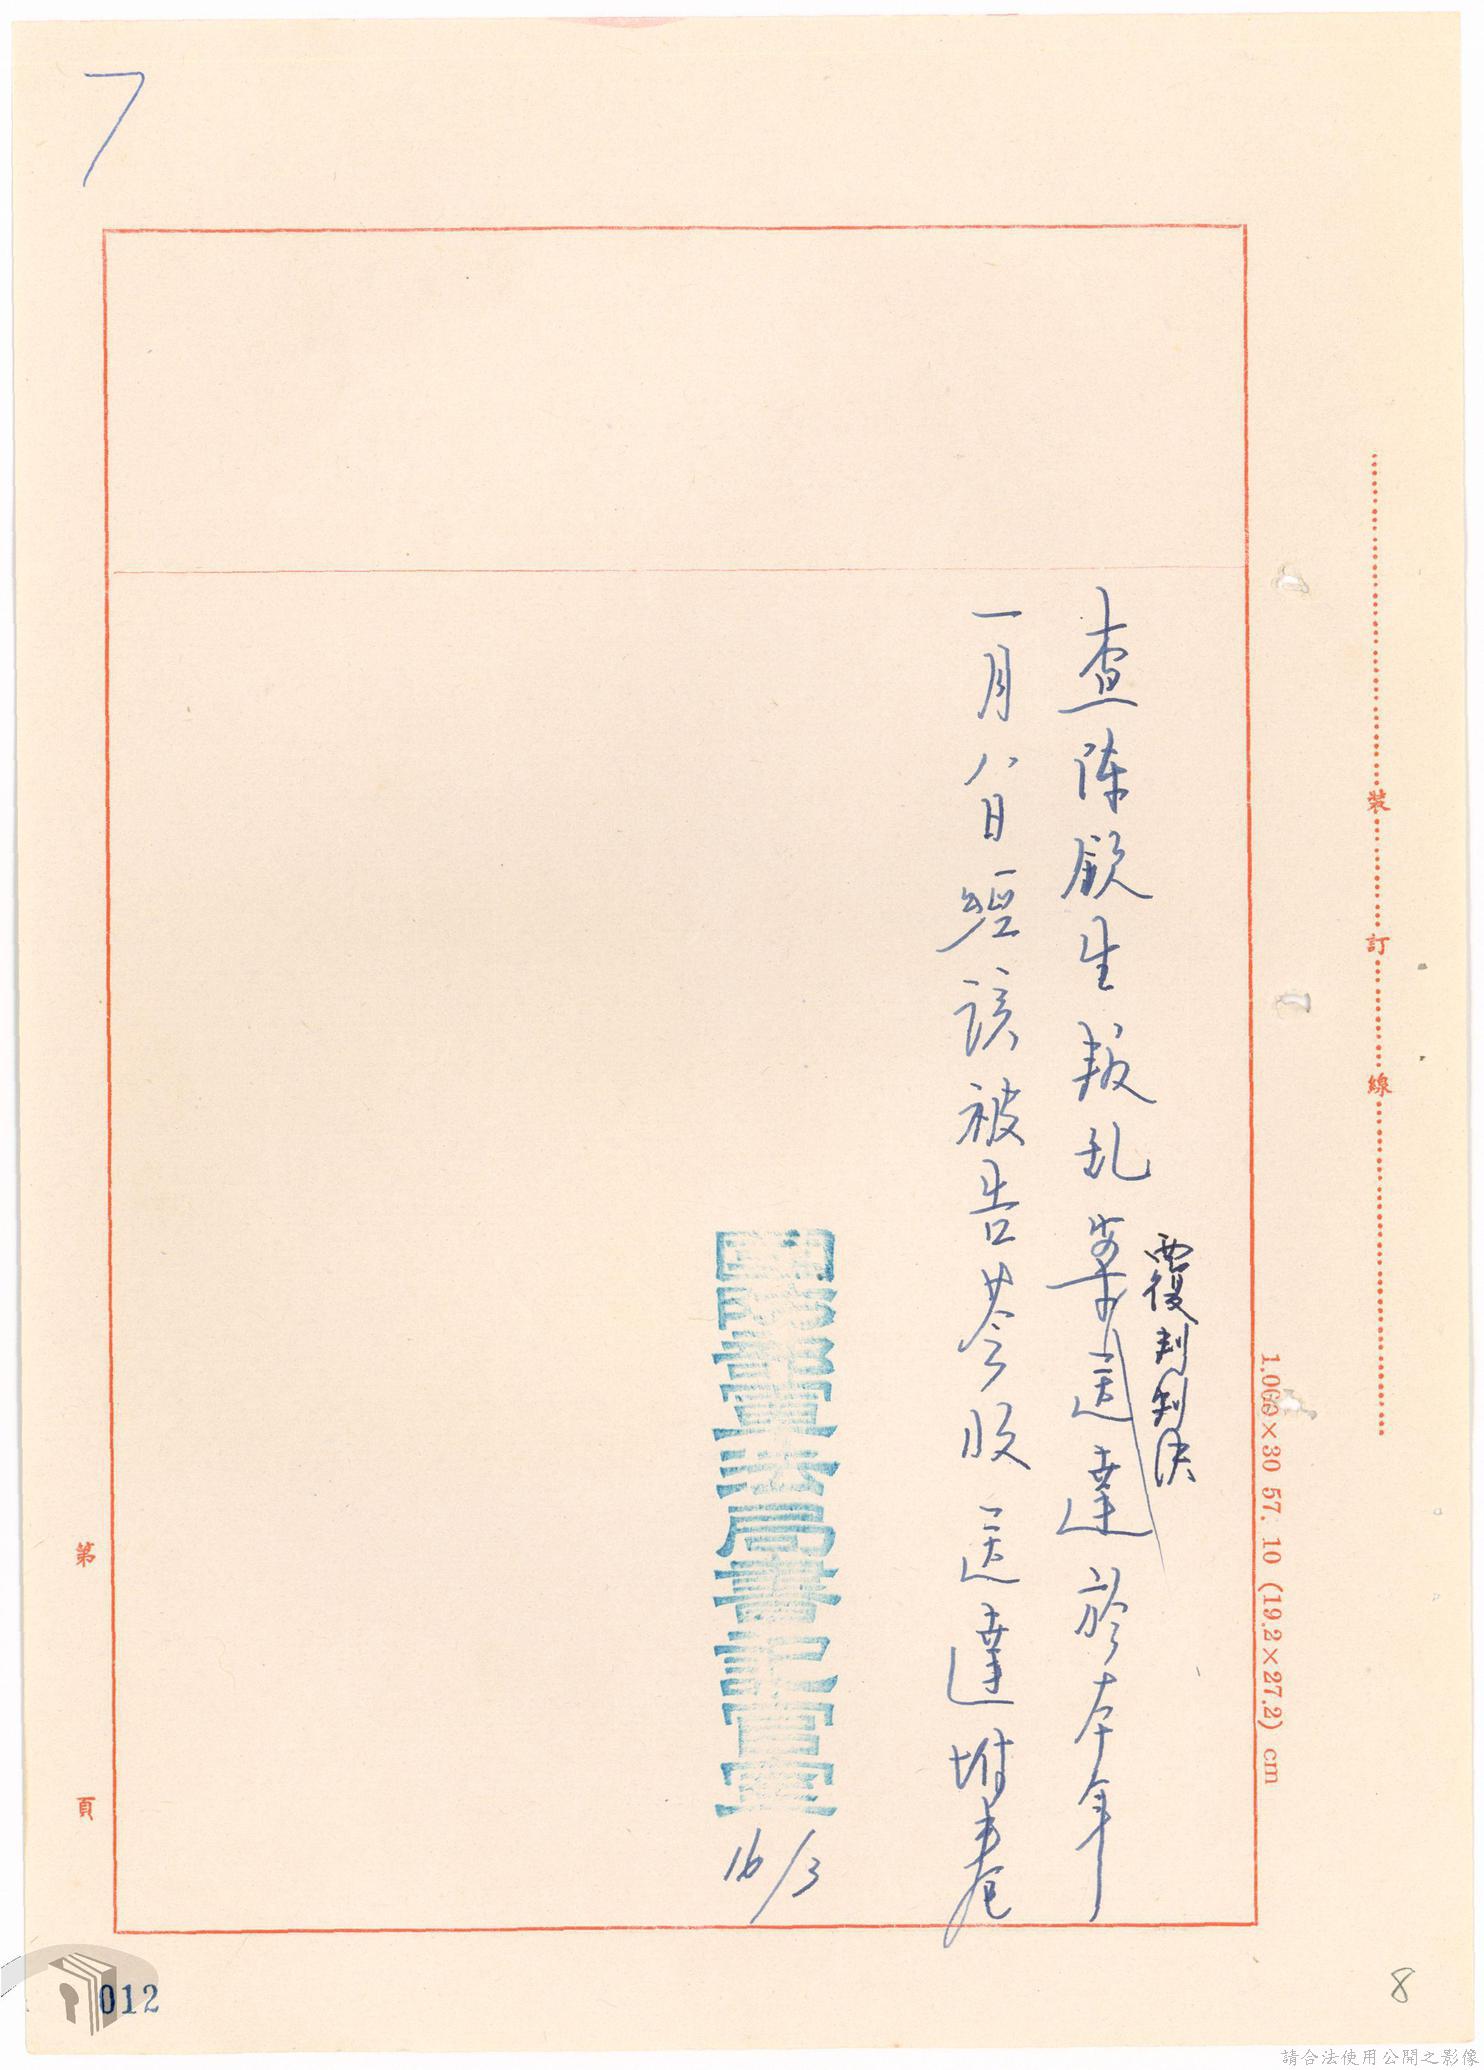 7
覆判判決
查陈欽生叛乱案送達於本年
一月八日經該被告共今收送達附卷
國防部軍法局書記官室
16/3
裝訂線
1,000×30 57. 10 (19.2×27.2) cm
第 頁
012
8
請合法使用公開之影像